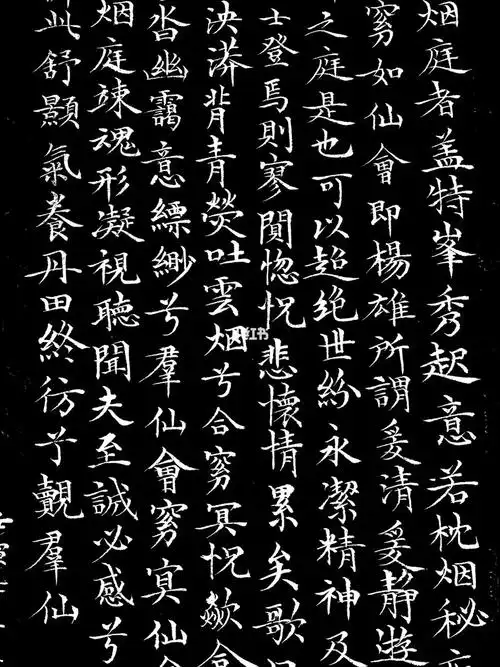 烟庭者盖特峯秀起意若枕烟秘
窮如仙會即楊雄所謂爰清爰靜遊
之庭是也可以超绝世紛永潔精神及
士登焉則寥閴惚怳悲懷情累矣歌
泱漭背青熒吐雲烟兮合窮冥怳歘
沓幽靄意縹緲兮羣仙會窮冥仙
烟庭竦魂形凝視聽聞夫至誠必感兮
此舒顥氣養丹田終彷兮覿羣仙
小红书